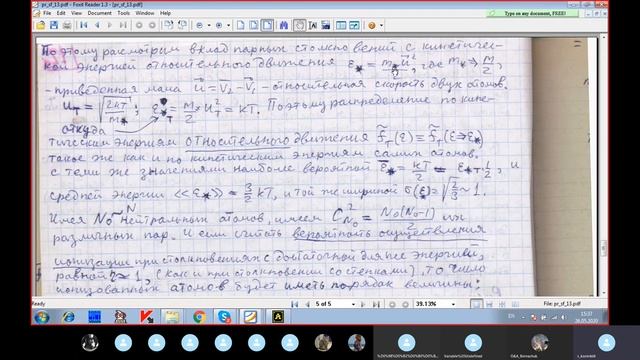 pr_sf_13.pdf - Foxit Reader 1.3 - [pr_sf_13.pdf]
File Edit View Document Tools Advanced Window Help
Type on any document, FREE!
Поэтому расмотрим вклад парных столкновений с кинетичес-
кой энергией относительного движения ε* = m* u²/2, где m* → m/2,
- приведенная масса u = v₂ - v₁ - относительная скорость двух атомов.
u_T = √(2kT/m*) ; ε*_T = m*/2 u_T² = kT. Поэтому распределение по кине-
откуда
тическим энергиям относительного движения f_T(ε) = f_T(ε→ε*)
такое же как и по кинетическим энергиям самих атомов.
с теми же значениями наиболее вероятной ε* = kT/2 = ε*_T 1/2, и
средней энергии <<ε*>> = 3/2 kT, и той же шириной σ(ε*) = √(2/3) ~ 1.
Имея N₀~N нейтральных атомов, имеем C²_N₀ = N₀(N₀-1)/2 их
различных пар. И если считать вероятность осуществления
ионизации при столкновениях с достаточной для нее энергией,
равной ≈ 1, (как и при столкновении со стенками), то число
ионизованных атомов будет иметь порядок величины:
5 of 5
39.13%
File: pr_sf_13.pdf
EN
15:37
26.05.2020